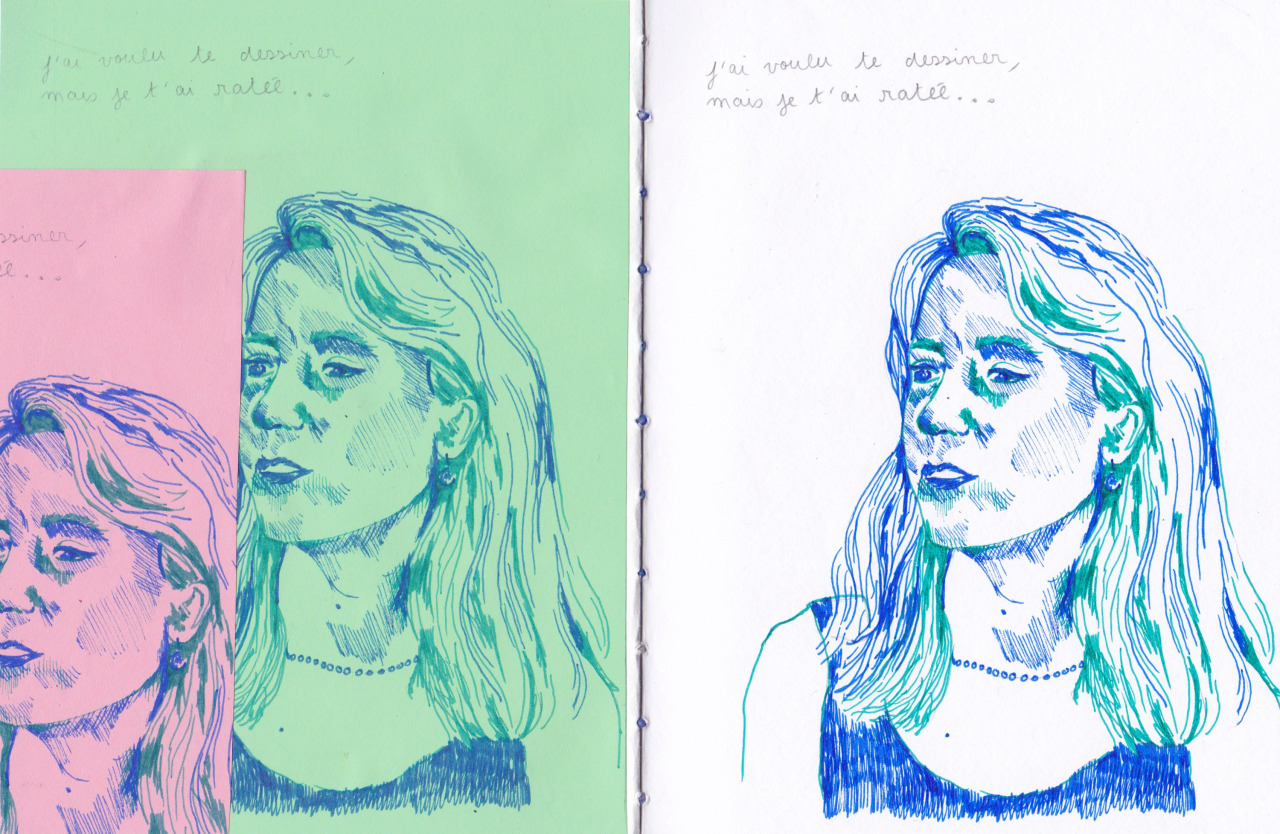 j'ai voulu te dessiner,
mais je t'ai ratée...
ssiner,
ée...
j'ai voulu te dessiner,
mais je t'ai ratée...